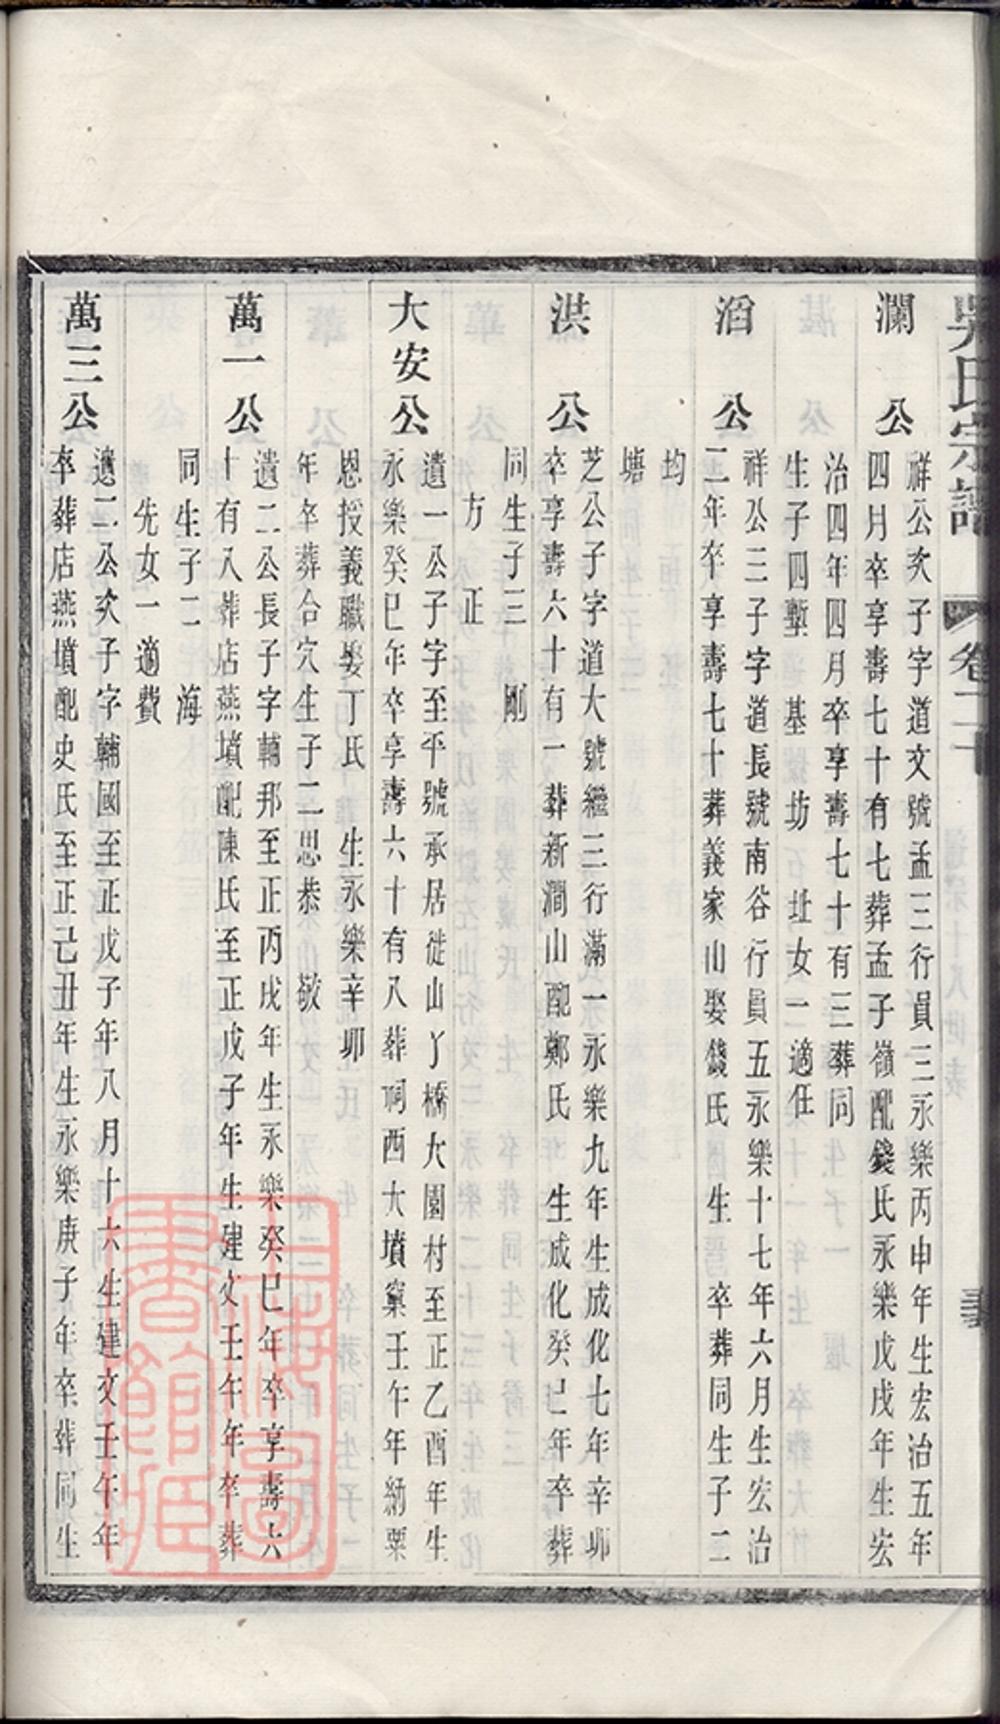 吳氏宗譜 卷二十
瀾公
祥公次子字道文號孟三行員三永樂丙申年生宏治五年
四月卒享壽七十有七葬孟子嶺配錢氏永樂戊戌年生宏
治四年四月卒享壽七十有三葬同
生子四塹 基 坊 址女一適任
滔公
祥公三子字道長號南谷行員五永樂十七年六月生宏治
二年卒享壽七十葬義家山娶錢氏 生 卒葬同生子二
均
塘
洪公
芝公子字道大號繼三行滿一永樂九年生成化七年辛卯
卒享壽六十有一葬新澗山配鄭氏 生成化癸巳年卒葬
同生子三 剛
方 正
大安公
遺一公子字至平號承居徙山丫橋大園村至正乙酉年生
永樂癸巳年卒享壽六十有八葬峒西大墳窠壬午年納粟
恩授義職娶丁氏 生永樂辛卯
年卒葬合穴生子二思恭 敬
萬一公
遺二公長子字輔邦至正丙戌年生永樂癸巳年卒享壽六
十有八葬店燕墳配陳氏至正戊子年生建文壬午年卒葬
同生子二 海
先女一適費
萬三公
遺二公次子字輔國至正戊子年八月十六生建文壬午年
卒葬店燕墳配史氏至正己丑年生永樂庚子年卒葬同生
上海圖書館藏